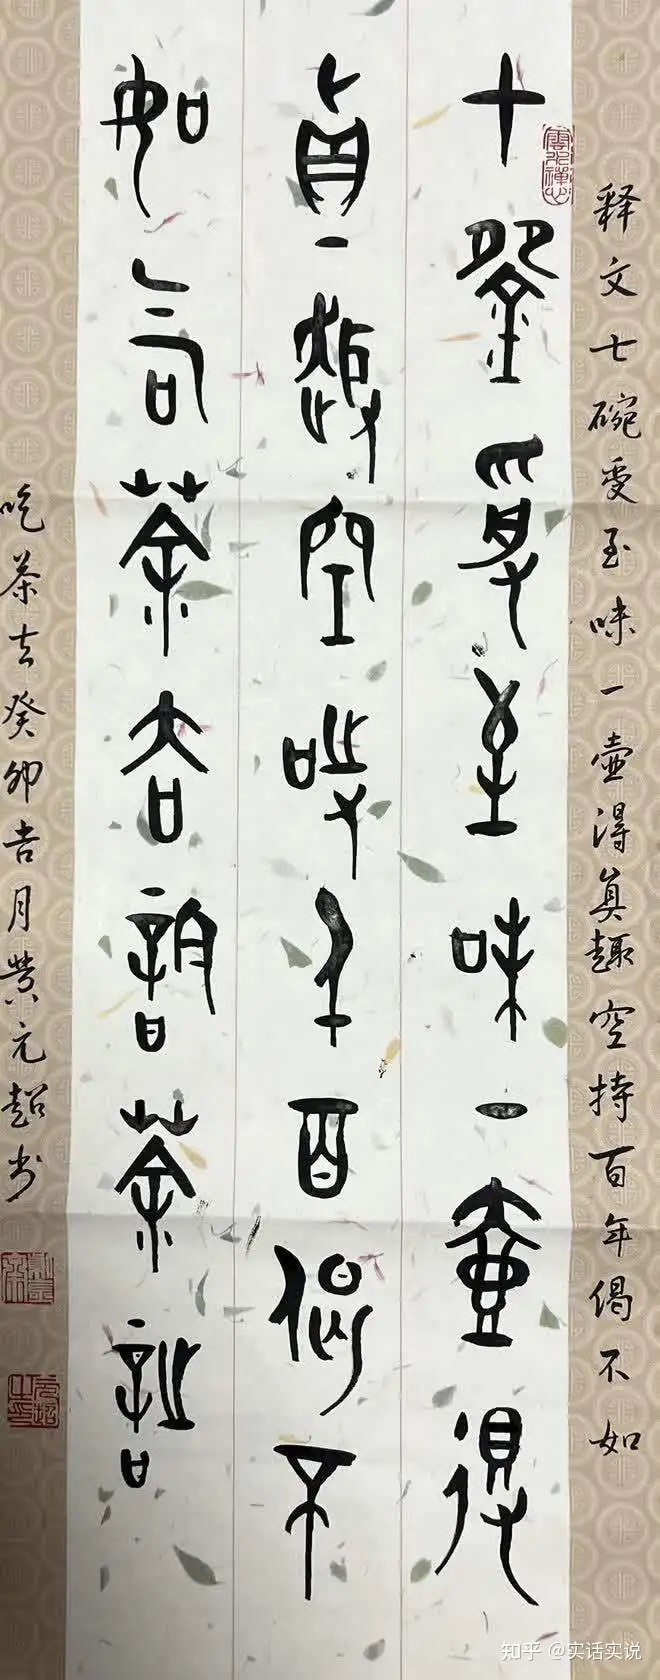 释文七碗受至味一壶得真趣空持百年偈不如
雲水禪心
七受至味一壺得
真趣空持千百偈不
如茶去茶
吃茶去癸卯吉月元超书
元超之印
知乎 @实话实说